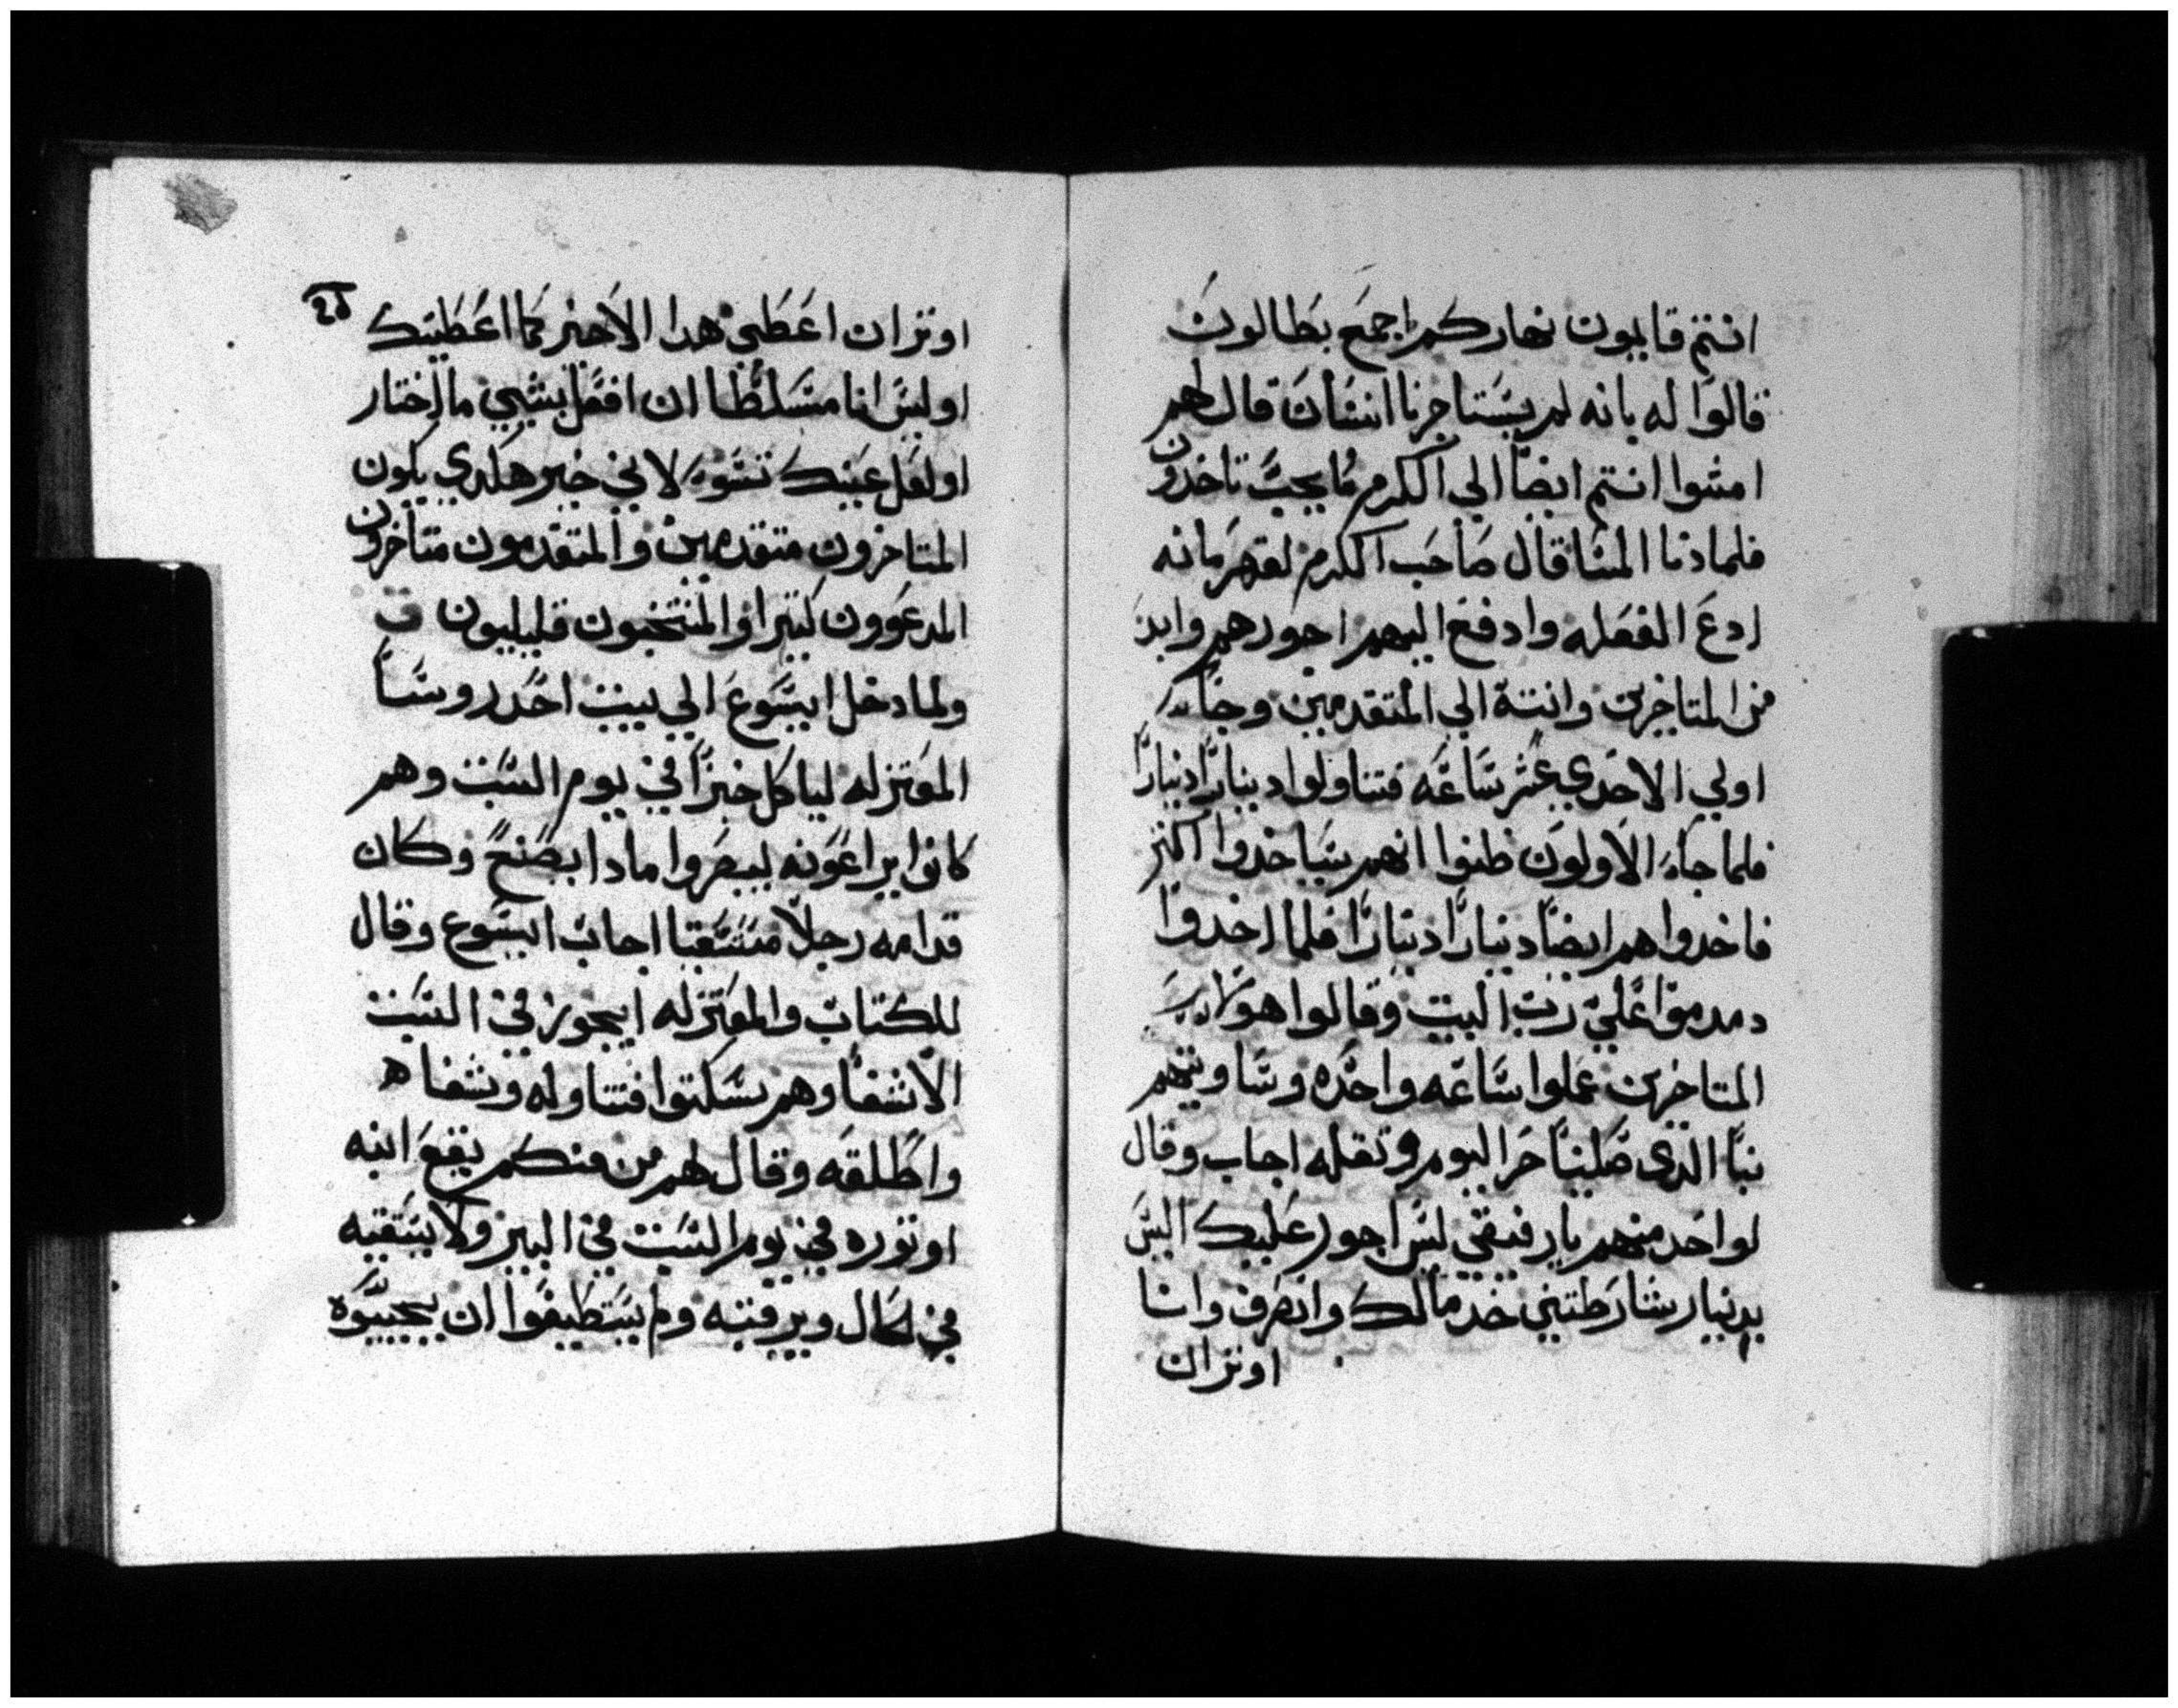 انتم قايمون نهاركم اجمع بطالون
قالوا له بانه لم يستاجرنا انسان قال لهم
امشوا انتم ايضا الي الكرم مايجب تاخدون
فلما دنا المسا قال صاحب الكرم لقهرمانه
ادع الفعله وادفع اليهم اجورهم وابد
من المتاخرين وانته الي المتقدمين وجا
اولي الاحدي عشر ساعه فتناولوا دينارا دينارا
فلما جاء الاولون ظنوا انهم سياخدوا اكتر
فاخدوا هم ايضا دينارا دينارا فلما اخدوا
دمدموا علي رب البيت وقالوا هولاء
المتاخرين عملوا ساعه واحده وساويتهم
بنا الدي صلينا حر اليوم وتقله اجاب وقال
لواحد منهم يارفيقي لس اجور عليك اليس
بدينار شارطتني خد مالك وانصرف وانا
اوتران
اوتران اعطي هدا الاخير كما اعطيتك
اوليس انا مسلطا ان افعل بشيي ما اختار
اولعل عينك تسوء لاني خير هكدي يكون
المتاخرون متقدمين والمتقدمون متاخرون
المدعوون كتيرا والمنتخبون قليليون ق
ولما دخل ايسوع الي بيت احد روسا
المعتزله لياكل خبزا في يوم السبت وهم
كانوا يراعونه ليبصروا مادا يصنع وكان
قدامه رجلا مستسقيا اجاب ايسوع وقال
للكتاب والمعتزله ايجوز في السبت
الاشفا وهم سكتوا فتناوله وشفاه
واطلقه وقال لهم من منكم يقع ابنه
اوتوره في يوم السبت في البير ولا يستقيه
في الحال ويرقبه ولم يستطيعوا ان يجيبوه